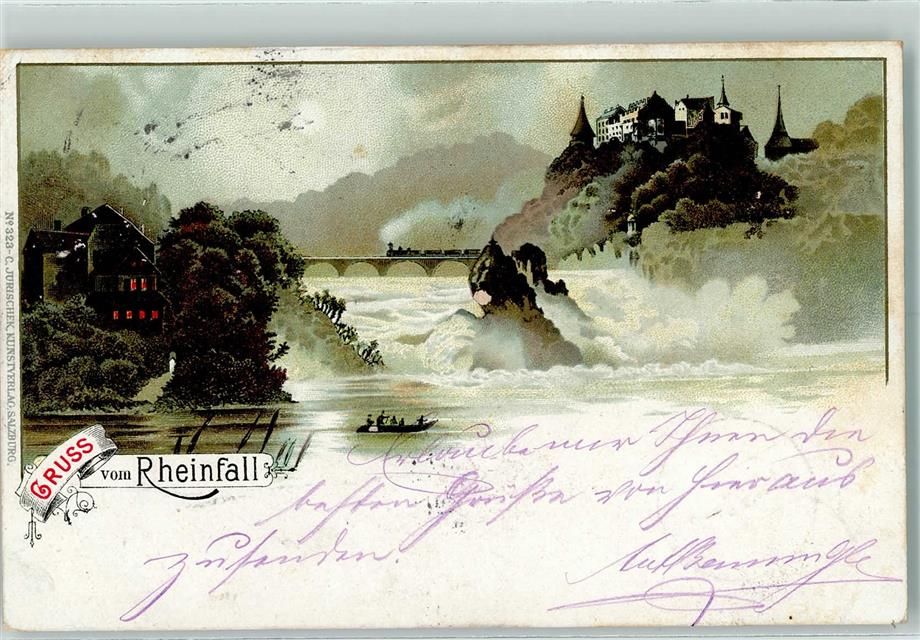 No 323 - C. JURISCHEK, KUNSTVERLAG, SALZBURG.
GRUSS
vom Rheinfall
Erlaube mir Ihnen die
besten Grüße von hier aus
zusenden.